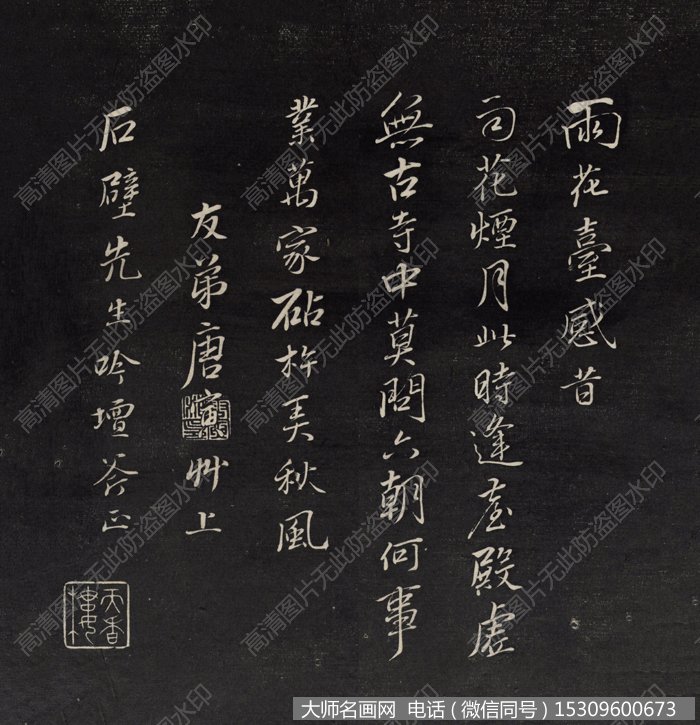 雨花臺感昔
司花煙月此時逢臺殿虛
無古寺中莫問六朝何事
業萬家砧杵美秋風
友弟唐寅艸上
石壁先生吟壇荅正
天香樓
高清图片无此防盗图水印
大师名画网 电话(微信同号)15309600673